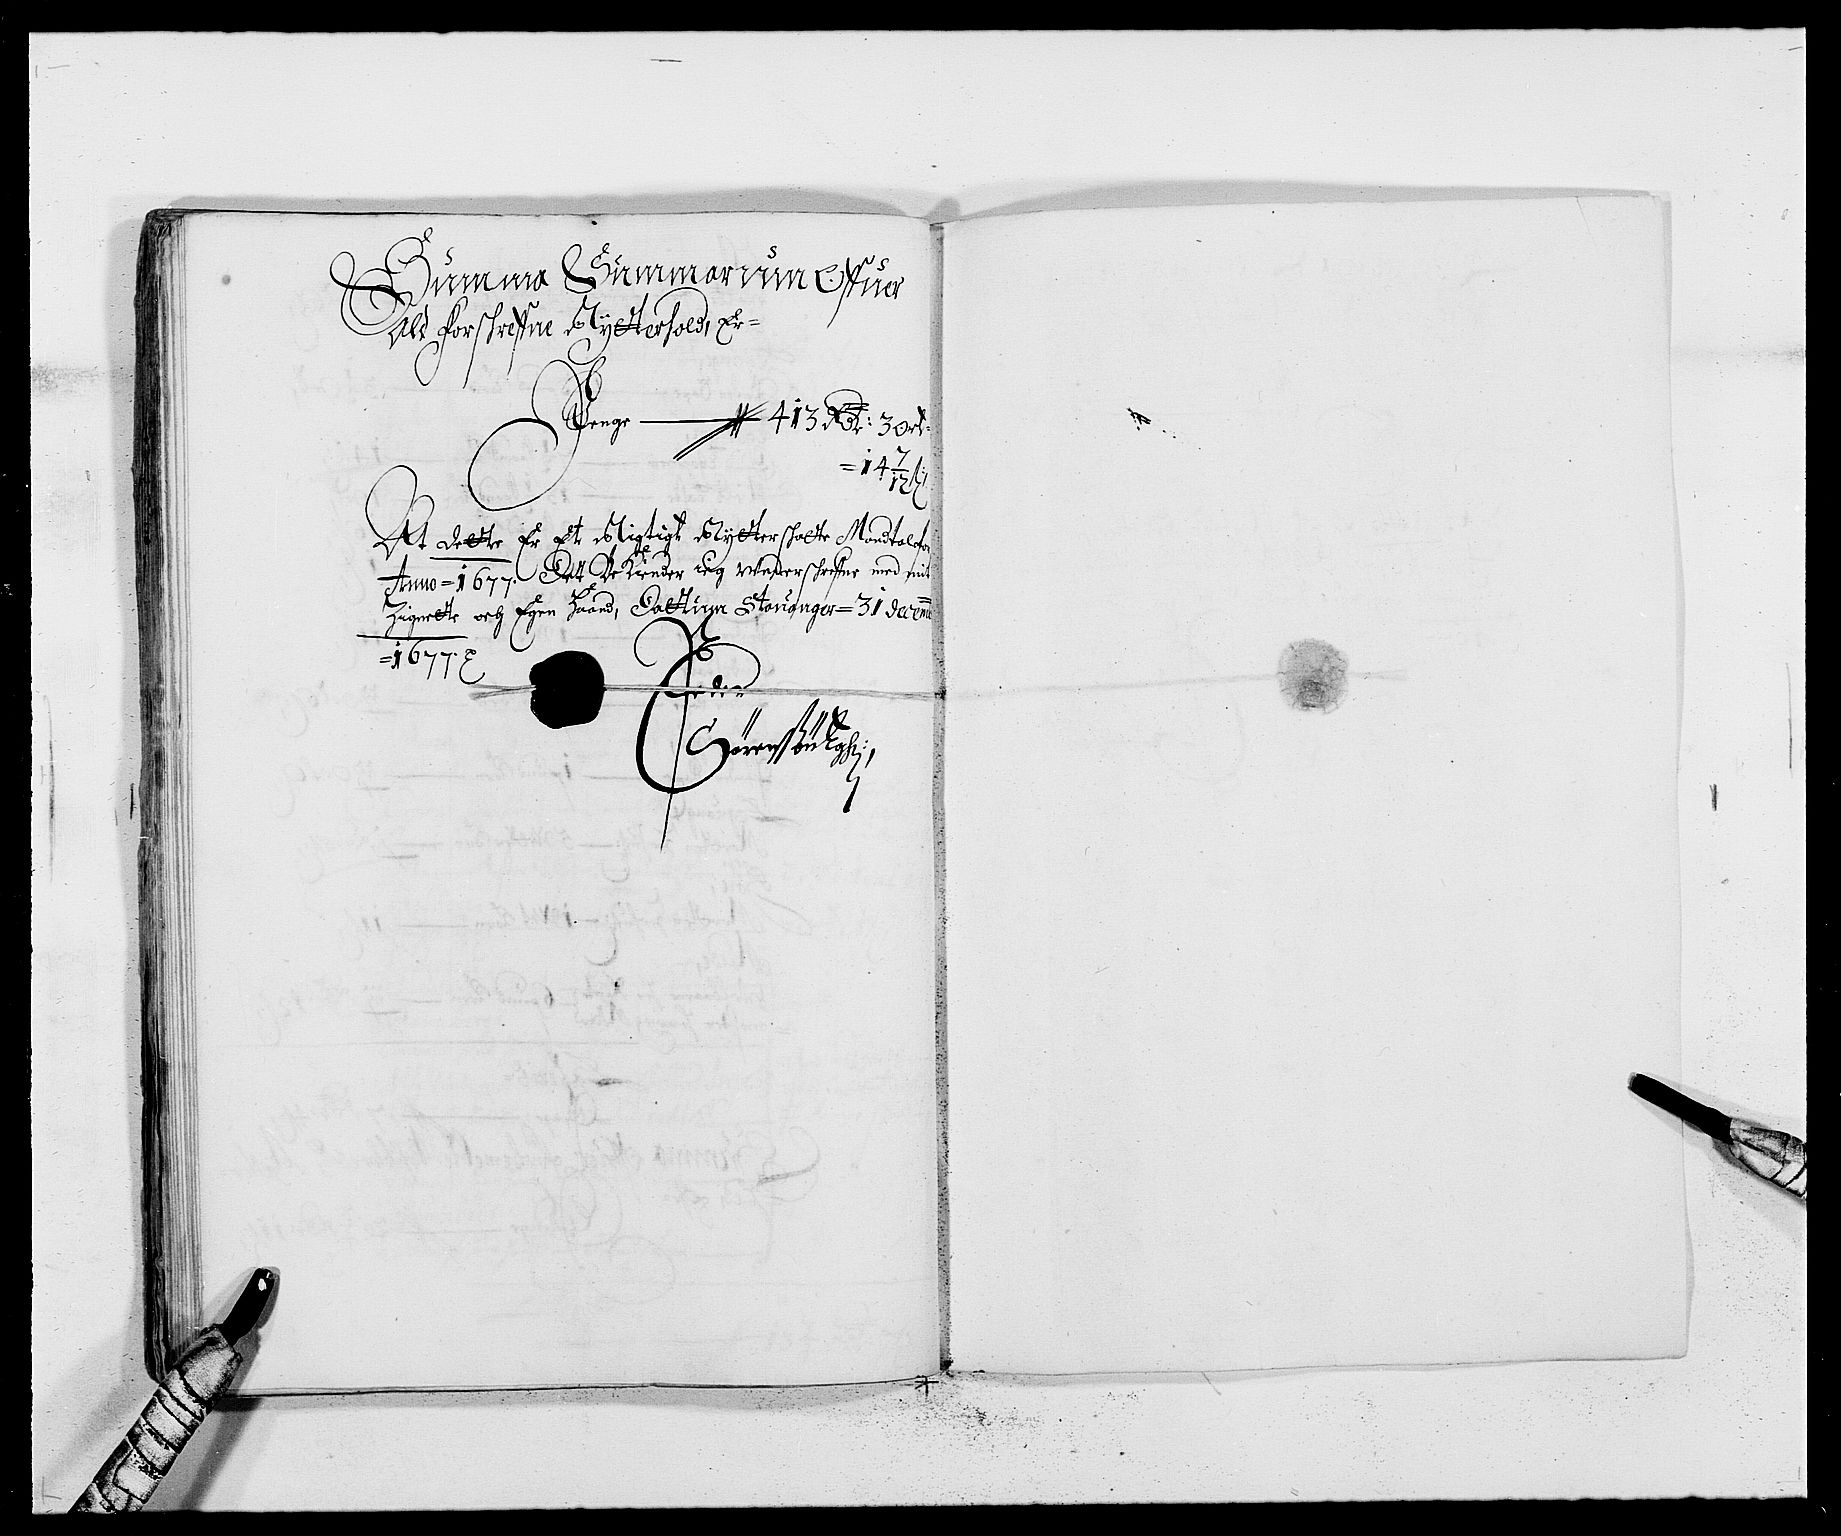 Summa Summarium Offuer
Ald Forschreffne Rytterhold, Er=
Penge — 413 Rdr: 3 ort=
=14 7/12 ß
At dette Er Et Rigtigt Rytterholdts Mandtal for
Anno=1677. Det Bekiender ieg underschreffne med mit
Zignette och Egen Haand, Dattum Stauanger=31 decemb
=1677.
Peder
Sörenss